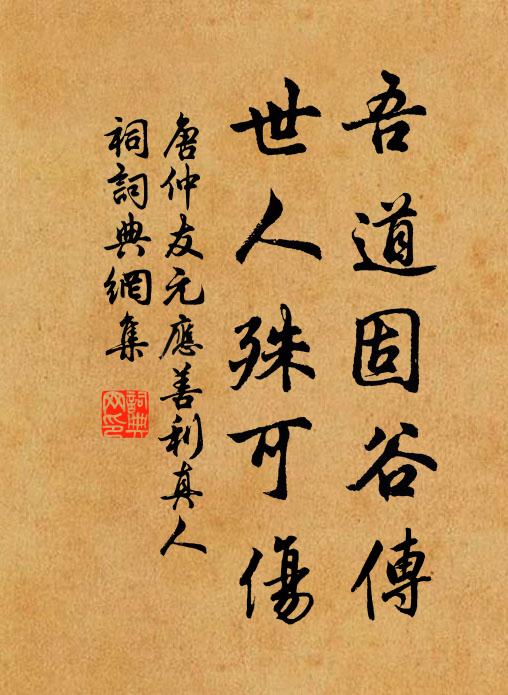 吾道固谷傳
世人殊可傷
唐仲友元應善利真人
祠詞典網集
詞典网印